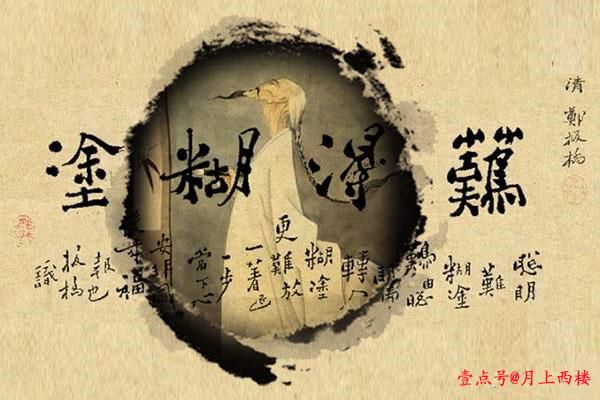 難得糊塗
清 鄭板橋
聰明
難
糊塗
難由聰
轉入
糊塗
更難放
一著退
一步
當下心
安非圖
後來福
報也
板橋
識
壹点号@月上西楼